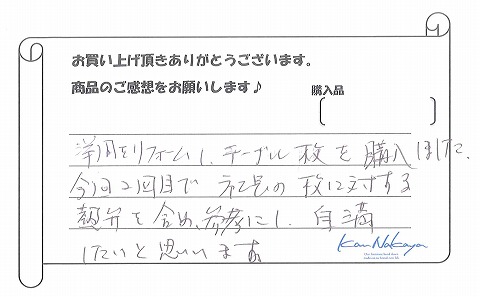 お買い上げ頂きありがとうございます。
商品のご感想をお願いします♪
購入品
洋間をリフォームし、テーブル 板を購入しました。
今回2回目で 社長の 板に対する
熱弁を含め、参考にし、自満
したいと思います。
Kan Nakaya